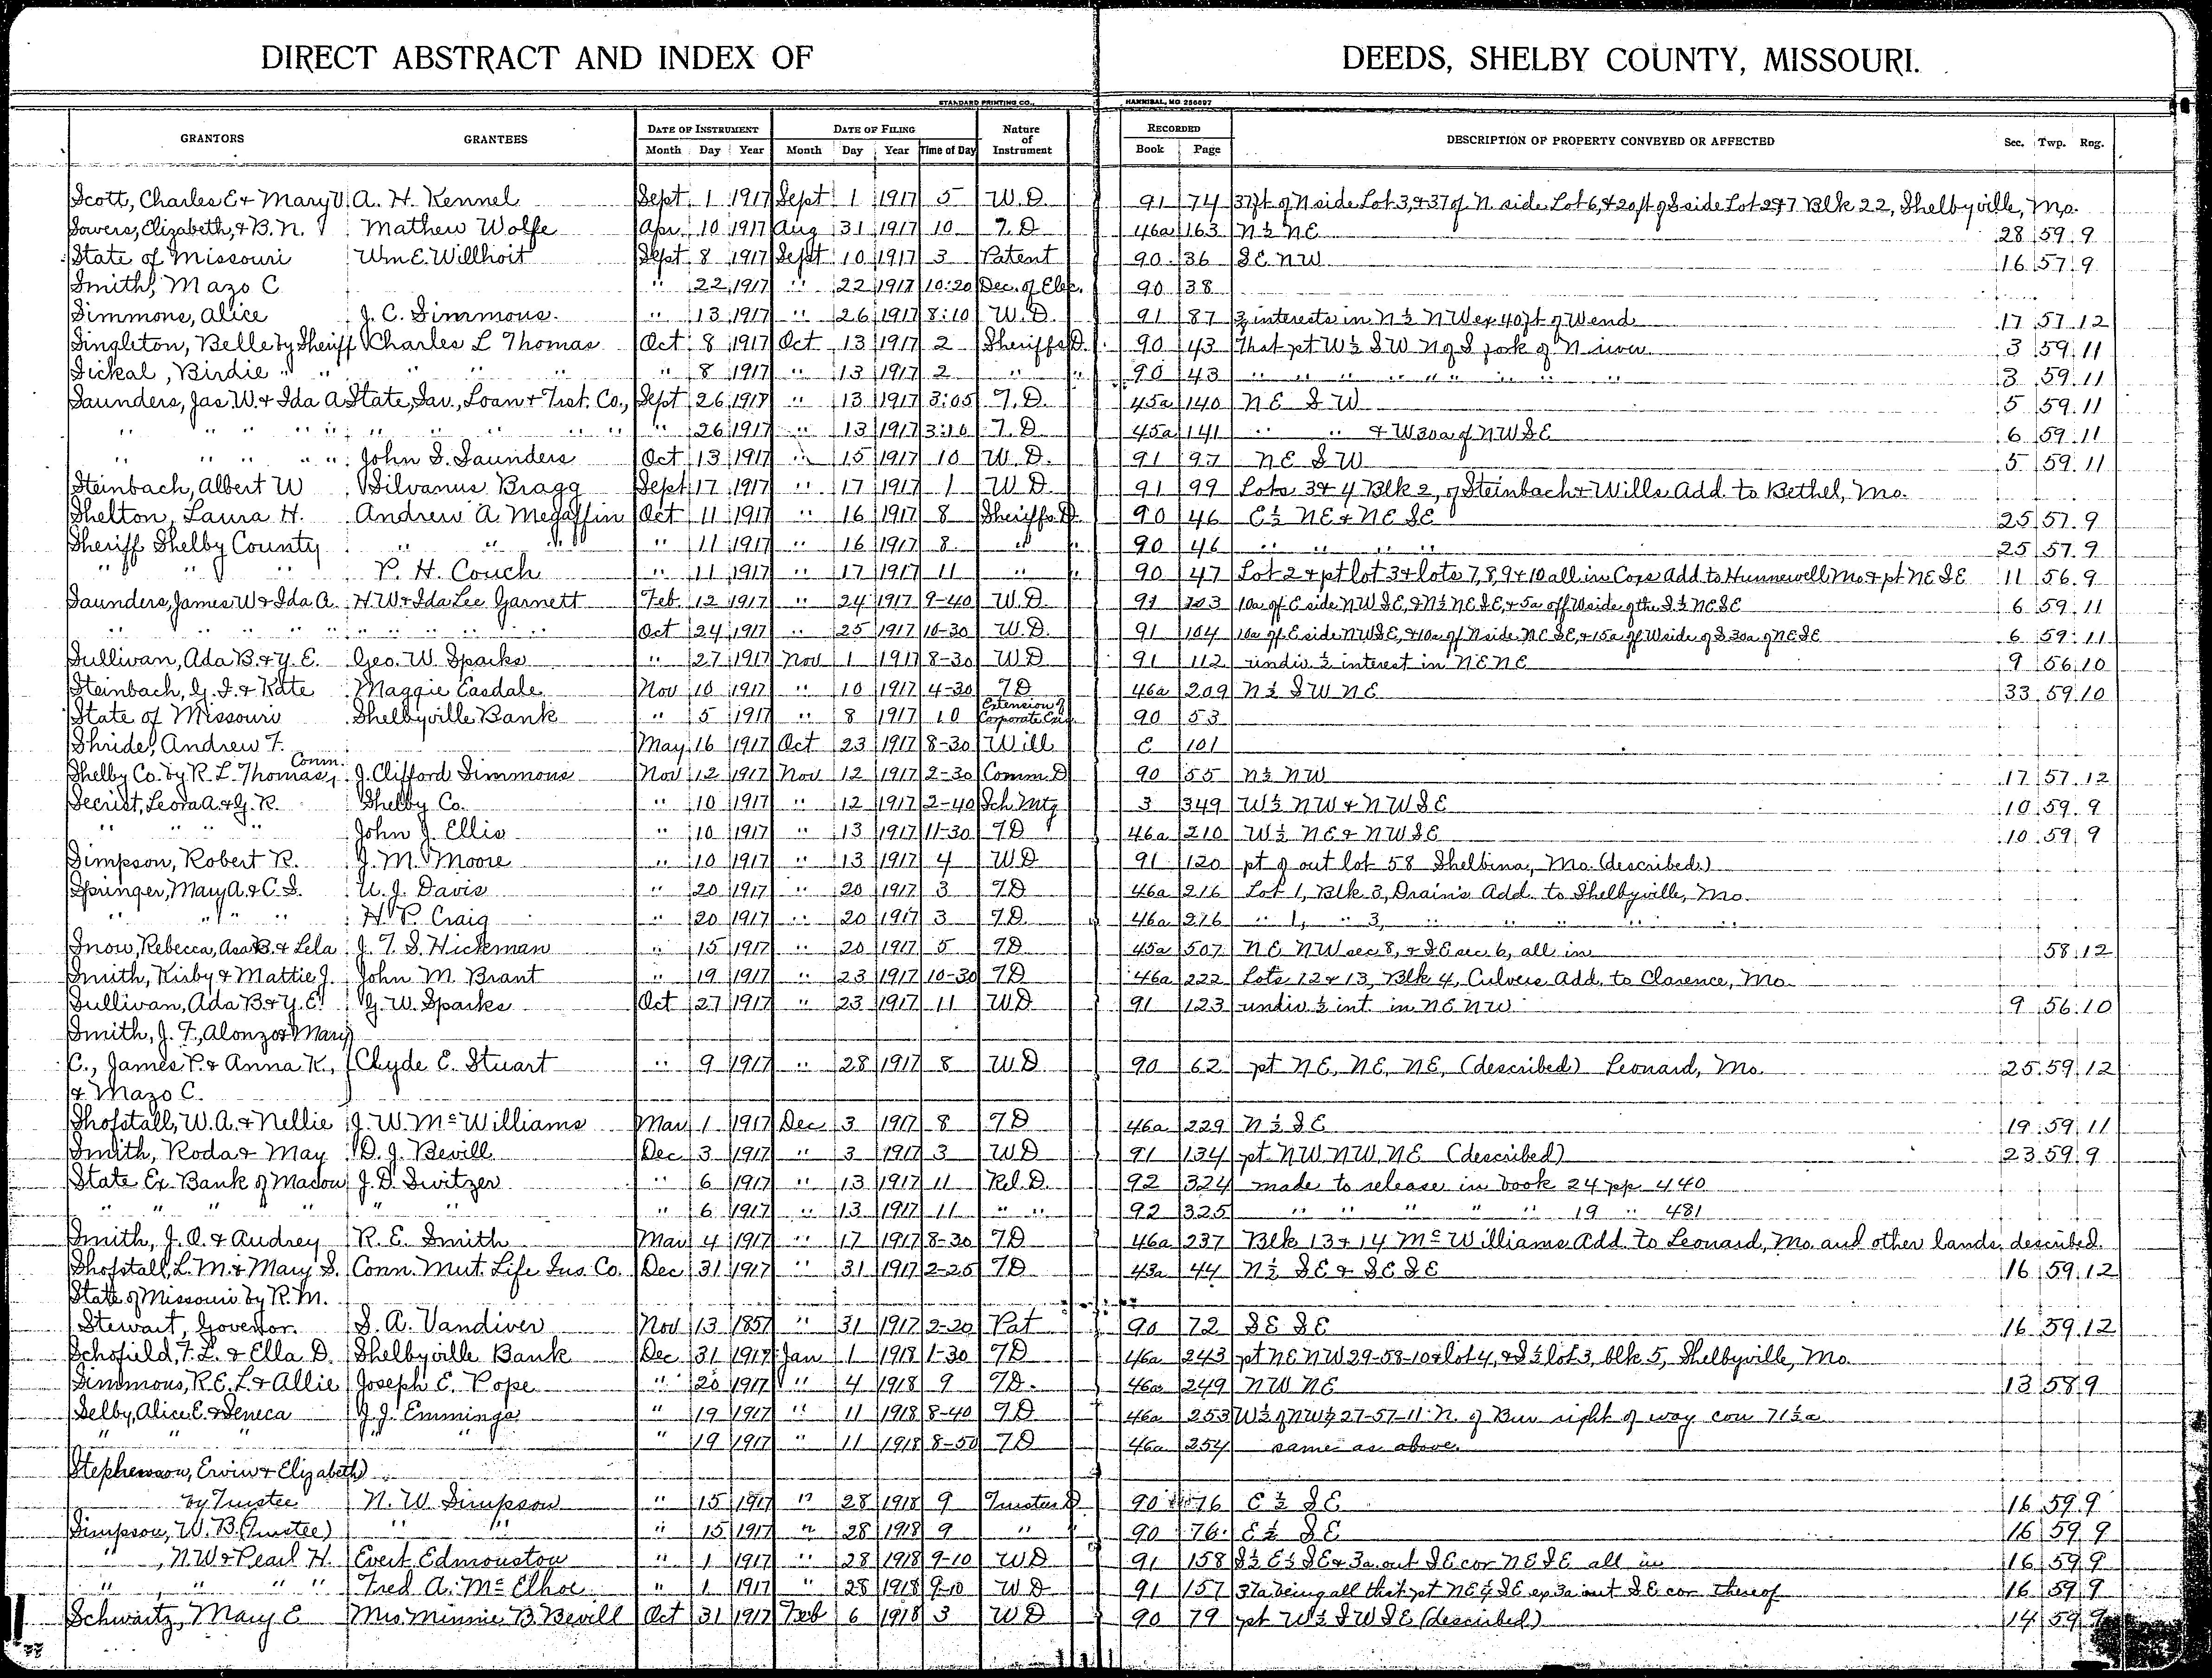 DIRECT ABSTRACT AND INDEX OF DEEDS, SHELBY COUNTY, MISSOURI.
STANDARD PRINTING CO., HANNIBAL, MO 256697
GRANTORS GRANTEES DATE OF INSTRUMENT DATE OF FILING Nature of Instrument RECORDED DESCRIPTION OF PROPERTY CONVEYED OR AFFECTED Sec. Twp. Rng.
Month Day Year Month Day Year Time of Day Book Page
Scott, Charles E & Mary V A. H. Kennel Sept 1 1917 Sept 1 1917 5 W.D. 91 74 37ft of N side Lot 3, & 37 of N. side Lot 6, & 20ft of S side Lot 2&7 Blk 22, Shelbyville, Mo.
Sowers, Elizabeth, & B. N. Mathew Wolfe Apr. 10 1917 Aug 31 1917 10 T.D 46a 163 N½ NE 28 59 9
State of Missouri Wm E. Willhoit Sept 8 1917 Sept 10 1917 3 Patent 90 36 SE NW 16 57 9
Smith, Mazo C " 22 1917 " 22 1917 10:20 Dec. of Elec. 90 38
Simmons, Alice J. C. Simmons. " 13 1917 " 26 1917 8:10 W.D. 91 87 interests in N½ NW ex 40ft of W end 17 57 12
Singleton, Belle by Sheriff Charles L Thomas Oct 8 1917 Oct 13 1917 2 Sheriffs D. 90 43 That pt W½ SW N of S fork of N river 3 59 11
Sickal, Birdie " " " " " " 8 1917 " 13 1917 2 " " 90 43 " " " " " " " " " 3 59 11
Saunders, Jas. W. & Ida A State, Sav., Loan & Trst. Co., Sept 26 1917 " 13 1917 3:05 T.D. 45a 140 NE SW 5 59 11
" " " " " " " " " " 26 1917 " 13 1917 3:10 T.D 45a 141 " " & W30a of NWSE 6 59 11
" " " " " John S. Saunders Oct 13 1917 " 15 1917 10 W.D. 91 97 NE SW 5 59 11
Steinbach, Albert W Silvanus Bragg Sept 17 1917 " 17 1917 1 W D 91 99 Lots 3 & 4 Blk 2, of Steinbach & Wills Add. to Bethel, Mo.
Shelton, Laura H. Andrew A Megaffin Oct 11 1917 " 16 1917 8 Sheriffs D. 90 46 E½ NE & NE SE 25 57 9
Sheriff Shelby County " " " " 11 1917 " 16 1917 8 " " 90 46 " " " " 25 57 9
" " " P. H. Couch " 11 1917 " 17 1917 11 " " 90 47 Lot 2 & pt lot 3 & lots 7,8,9 & 10 all in Cops Add to Hunnewell Mo. & pt NE SE 11 56 9
Saunders, James W & Ida A. H.W & Ida Lee Garnett Feb. 12 1917 " 24 1917 9-40 W.D. 91 103 10a of E side NW SE, & N½ NE SE, & 5a off W side of the S.½ NE SE 6 59 11
" " " " " " " " " Oct 24 1917 " 25 1917 10-30 W.D. 91 104 10a of E side NWSE, & 10a of N side NE SE, & 15a of W side of S 30a of NESE 6 59 11
Sullivan, Ada B. & Y. E. Geo. W. Sparks " 27 1917 Nov 1 1917 8-30 WD 91 112 undiv. ½ interest in NENE 9 56 10
Steinbach, G. I. & Kate Maggie Easdale Nov 10 1917 " 10 1917 4-30 TD 46a 209 N½ SW NE 33 59 10
State of Missouri Shelbyville Bank " 5 1917 " 8 1917 10 Extension of Corporate Exis. 90 53
Shride, Andrew F. May 16 1917 Oct 23 1917 8-30 Will E 101
Shelby Co. by R. L. Thomas, Comm. J. Clifford Simmons Nov 12 1917 Nov 12 1917 2-30 Comm. D 90 55 N½ NW 17 57 12
Secrist, Leora A. & G. R. Shelby Co. " 10 1917 " 12 1917 2-40 Sch Mtg 3 349 W½ NW & NWSE 10 59 9
" " " " John J. Ellis " 10 1917 " 13 1917 11-30 TD 46a 210 W½ NE & NWSE 10 59 9
Simpson, Robert R. J. M. Moore " 10 1917 " 13 1917 4 WD 91 120 pt of out lot 58 Shelbina, Mo. (described.)
Springer, Mary A. & C. S. U. J. Davis " 20 1917 " 20 1917 3 TD 46a 216 Lot 1, Blk. 3, Drain's Add. to Shelbyville, Mo.
" " " " H. P. Craig " 20 1917 " 20 1917 3 TD. 46a 216 " 1, " 3, " " " " "
Snow, Rebecca, Asa B. & Lela J. T. S. Hickman " 15 1917 " 20 1917 5 TD 45a 507 NE NW sec 8, & SE sec 6, all in 58 12
Smith, Kirby & Mattie J. John M. Brant " 19 1917 " 23 1917 10-30 TD 46a 222 Lots 12 & 13, Blk 4, Culvers Add. to Clarence, Mo.
Sullivan, Ada B. & Y. E. G. W. Sparks Oct 27 1917 " 23 1917 11 WD 91 123 undiv. ½ int. in NE NW 9 56 10
Smith, J. F., Alonzo & Mary
C., James P. & Anna K., Clyde E. Stuart " 9 1917 " 28 1917 8 WD 90 62 pt NE, NE, NE, (described) Leonard, Mo. 25 59 12
& Mazo C.
Shofstall, W. A. & Nellie J. W. McWilliams Mar 1 1917 Dec 3 1917 8 TD 46a 229 N½ SE 19 59 11
Smith, Roda & May D. J. Bevill Dec 3 1917 " 3 1917 3 WD 91 134 pt. NW, NW, NE (described) 23 59 9
State Ex. Bank of Macon J. D. Switzer " 6 1917 " 13 1917 11 Rel. D. 92 324 made to release in book 24 pp 440
" " " " " " " " 6 1917 " 13 1917 11 " " 92 325 " " " " " 19 " 481
Smith, J. O. & Audrey R. E. Smith Mar 4 1917 " 17 1917 8-30 TD 46a 237 Blk 13 & 14 McWilliams Add. to Leonard, Mo. and other lands described.
Shofstall, L. M. & Mary S. Conn. Mut. Life Ins. Co. Dec 31 1917 " 31 1917 2-25 TD 43a 44 N½ SE & SE SE 16 59 12
State of Missouri by R. M.
Stewart, Governor. S. A. Vandiver Nov 13 1857 " 31 1917 2-20 Pat 90 72 SE SE 16 59 12
Schofield, F. L. & Ella D. Shelbyville Bank Dec 31 1917 Jan 1 1918 1-30 TD 46a 243 pt NE NW 29-58-10 & lot 4, & S½ lot 3, blk 5, Shelbyville, Mo.
Simmons, R. E. L. & Allie Joseph E. Pope " 20 1917 " 4 1918 9 TD. 46a 249 NW NE 13 58 9
Selby, Alice E. & Seneca J. J. Emminga " 19 1917 " 11 1918 8-40 TD 46a 253 W½ of NW¼ 27-57-11 N. of Bur right of way con 71½ a
" " " " " " 19 1917 " 11 1918 8-50 TD 46a 254 same as above.
Stephenson, Ervin & Elizabeth)
by Trustee N. W. Simpson " 15 1917 " 28 1918 9 Trustees D 90 76 E½ SE 16 59 9
Simpson, W. B. (Trustee) " " " 15 1917 " 28 1918 9 " " 90 76 E½ SE 16 59 9
" , N W & Pearl H. Evert Edmonston " 1 1917 " 28 1918 9-10 WD 91 158 S½ E½ SE & 3a. out SE cor NE SE all in 16 59 9
" " " " Fred A. McElhoe " 1 1917 " 28 1918 9-10 WD 91 157 37a being all that pt NE¼ SE ex 3a out SE cor thereof 16 59 9
Schwartz, Mary E Mrs Minnie B. Bevill Oct 31 1917 Feb 6 1918 3 WD 90 79 pt W½ SW SE (described) 14 59 9